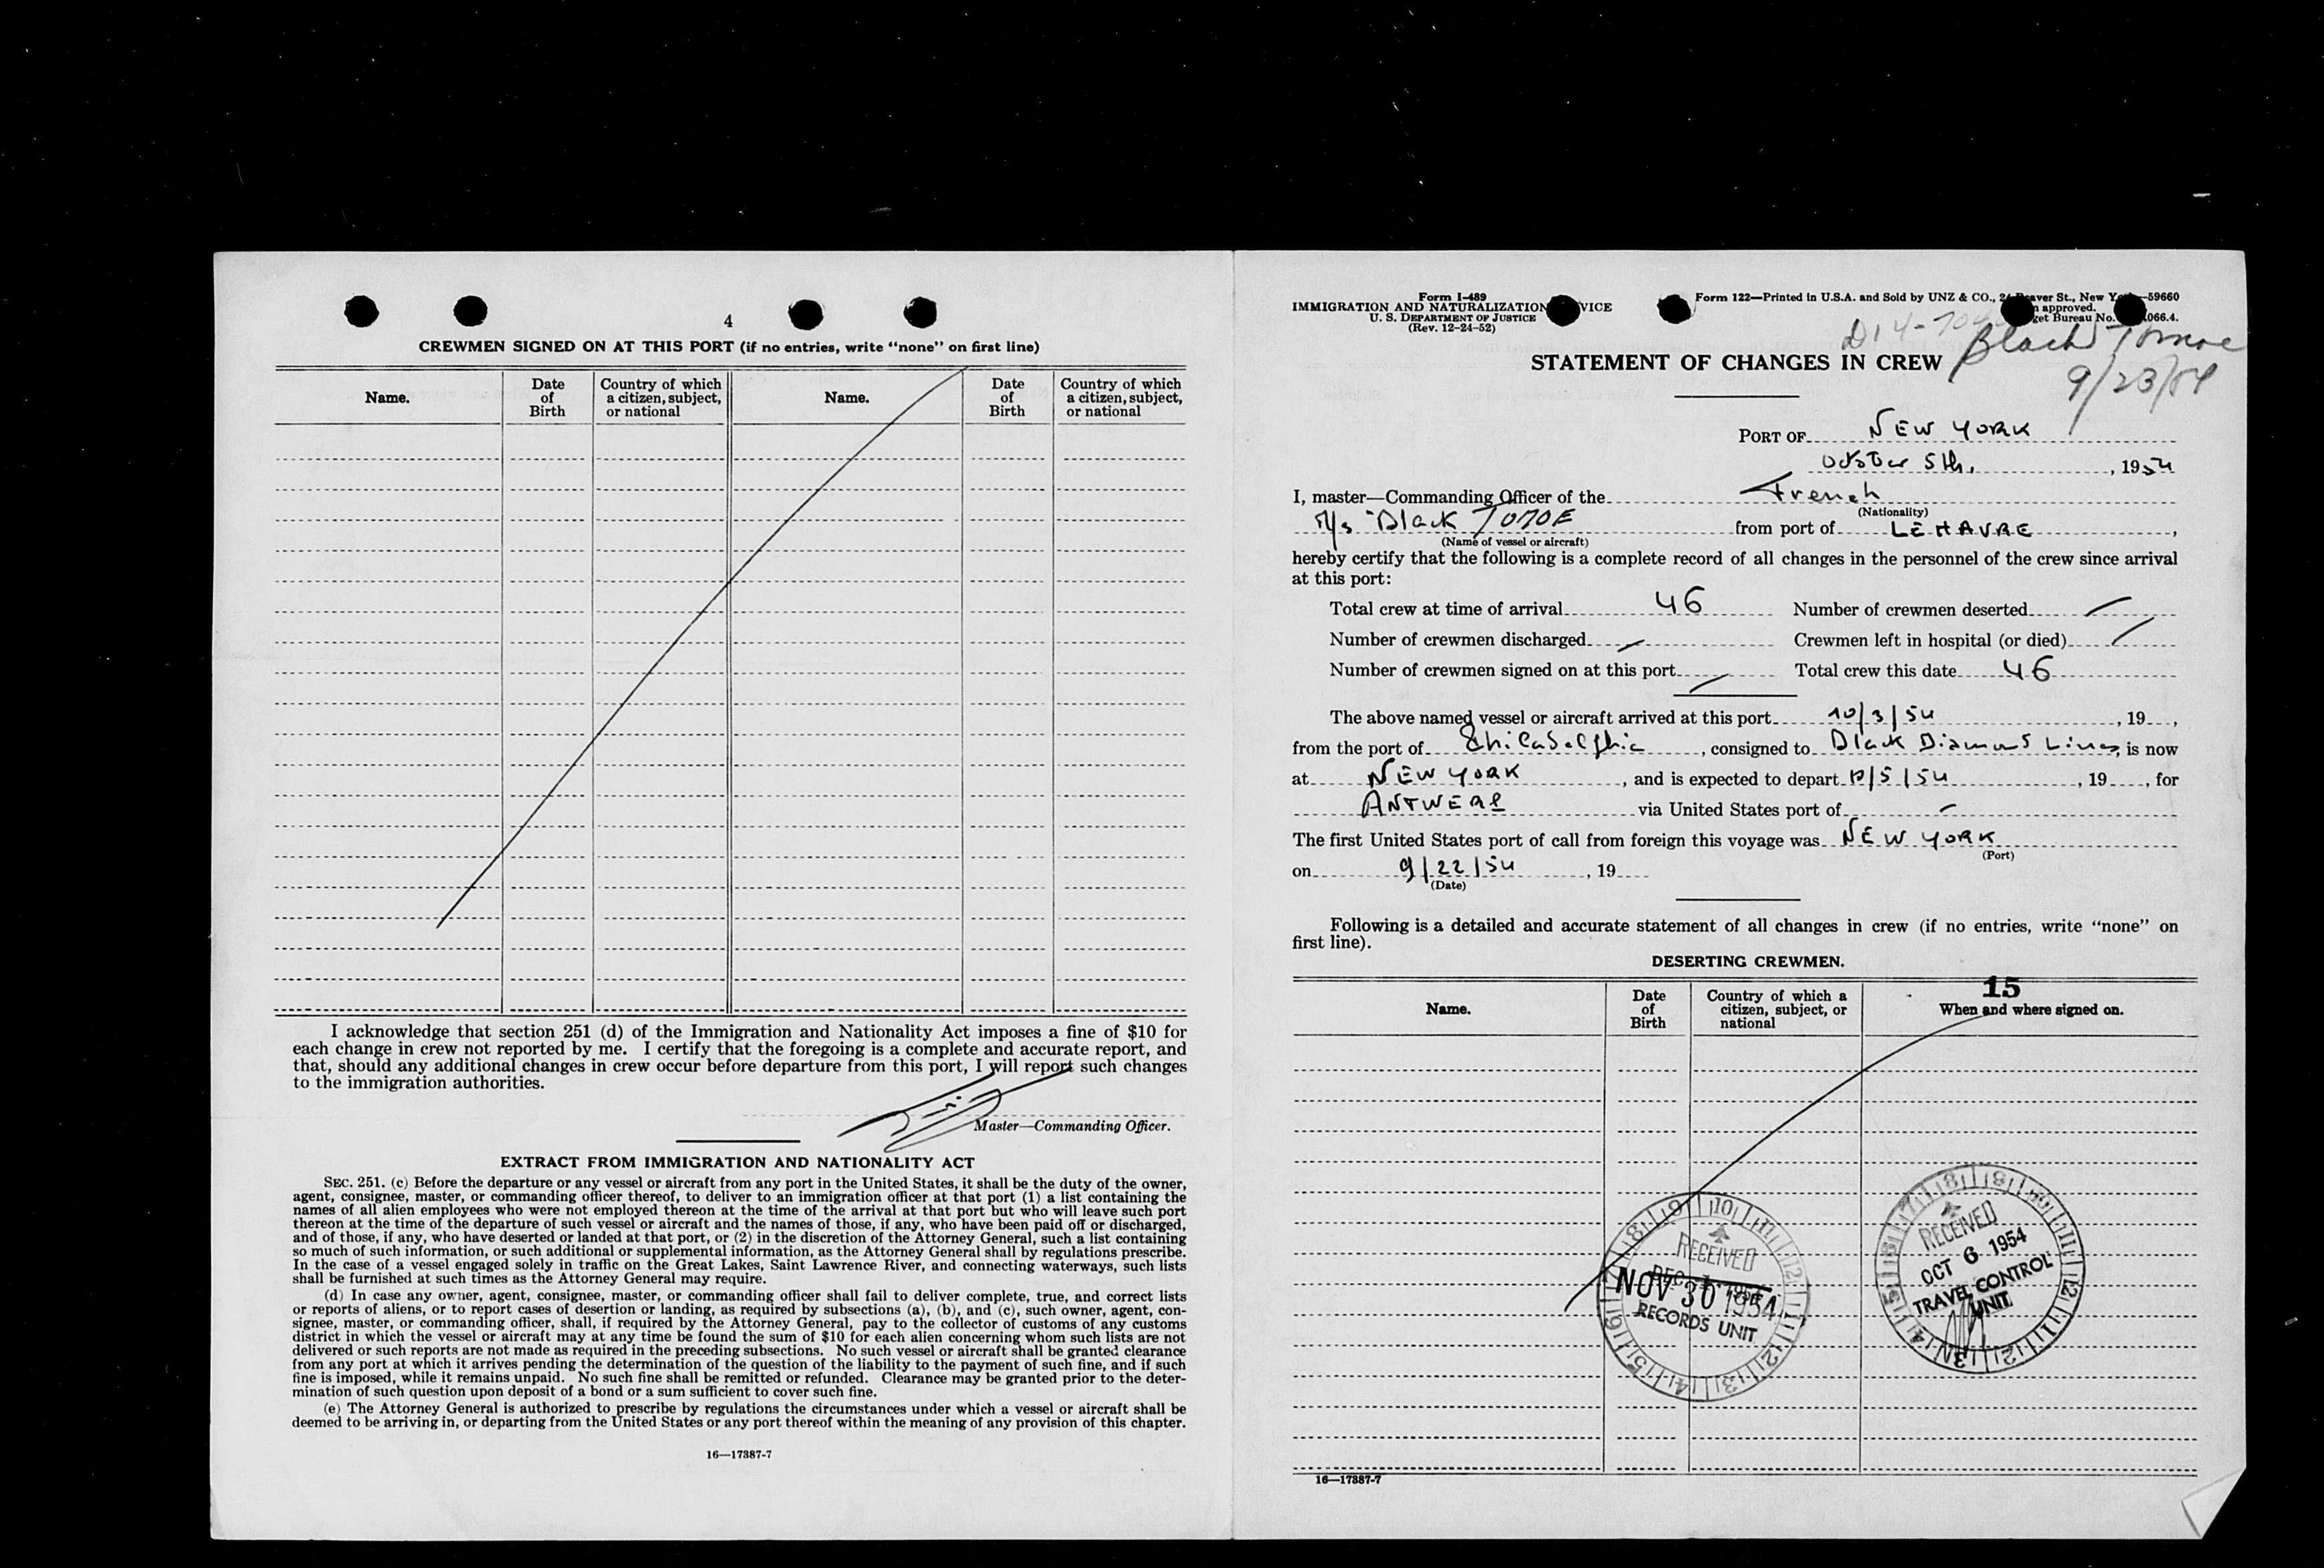 4
CREWMEN SIGNED ON AT THIS PORT (if no entries, write "none" on first line)
Name.
Date of Birth
Country of which a citizen, subject, or national
Name.
Date of Birth
Country of which a citizen, subject, or national
I acknowledge that section 251 (d) of the Immigration and Nationality Act imposes a fine of $10 for
each change in crew not reported by me. I certify that the foregoing is a complete and accurate report, and
that, should any additional changes in crew occur before departure from this port, I will report such changes
to the immigration authorities.
Master—Commanding Officer.
EXTRACT FROM IMMIGRATION AND NATIONALITY ACT
SEC. 251. (c) Before the departure or any vessel or aircraft from any port in the United States, it shall be the duty of the owner,
agent, consignee, master, or commanding officer thereof, to deliver to an immigration officer at that port (1) a list containing the
names of all alien employees who were not employed thereon at the time of the arrival at that port but who will leave such port
thereon at the time of the departure of such vessel or aircraft and the names of those, if any, who have been paid off or discharged,
and of those, if any, who have deserted or landed at that port, or (2) in the discretion of the Attorney General, such a list containing
so much of such information, or such additional or supplemental information, as the Attorney General shall by regulations prescribe.
In the case of a vessel engaged solely in traffic on the Great Lakes, Saint Lawrence River, and connecting waterways, such lists
shall be furnished at such times as the Attorney General may require.
(d) In case any owner, agent, consignee, master, or commanding officer shall fail to deliver complete, true, and correct lists
or reports of aliens, or to report cases of desertion or landing, as required by subsections (a), (b), and (c), such owner, agent, con-
signee, master, or commanding officer, shall, if required by the Attorney General, pay to the collector of customs of any customs
district in which the vessel or aircraft may at any time be found the sum of $10 for each alien concerning whom such lists are not
delivered or such reports are not made as required in the preceding subsections. No such vessel or aircraft shall be granted clearance
from any port at which it arrives pending the determination of the question of the liability to the payment of such fine, and if such
fine is imposed, while it remains unpaid. No such fine shall be remitted or refunded. Clearance may be granted prior to the deter-
mination of such question upon deposit of a bond or a sum sufficient to cover such fine.
(e) The Attorney General is authorized to prescribe by regulations the circumstances under which a vessel or aircraft shall be
deemed to be arriving in, or departing from the United States or any port thereof within the meaning of any provision of this chapter.
16—17387-7
Form I-489
IMMIGRATION AND NATURALIZATION VICE
U. S. DEPARTMENT OF JUSTICE
(Rev. 12-24-52)
Form 122—Printed in U.S.A. and Sold by UNZ & CO., St., New 59660
approved.
Bureau No. 066.4.
Black
9/23/54
STATEMENT OF CHANGES IN CREW
PORT OF NEW YORK
October 5th, , 1954
I, master—Commanding Officer of the French
(Nationality)
M/s "Black from port of LE HAVRE ,
(Name of vessel or aircraft)
hereby certify that the following is a complete record of all changes in the personnel of the crew since arrival
at this port:
Total crew at time of arrival 46 Number of crewmen deserted —
Number of crewmen discharged — Crewmen left in hospital (or died) —
Number of crewmen signed on at this port — Total crew this date 46
The above named vessel or aircraft arrived at this port 10/3/54 , 19 ,
from the port of Philadelphia , consigned to Black Diamond Lines, is now
at NEW YORK , and is expected to depart 10/5/54 , 19 , for
ANTWERP via United States port of —
The first United States port of call from foreign this voyage was NEW YORK
(Port)
on 9/22/54 , 19
(Date)
Following is a detailed and accurate statement of all changes in crew (if no entries, write "none" on
first line).
DESERTING CREWMEN.
15
Name.
Date of Birth
Country of which a citizen, subject, or national
When and where signed on.
RECEIVED
NOV 30 1954
RECORDS UNIT
RECEIVED
OCT 6 1954
TRAVEL CONTROL
UNIT
16—17387-7